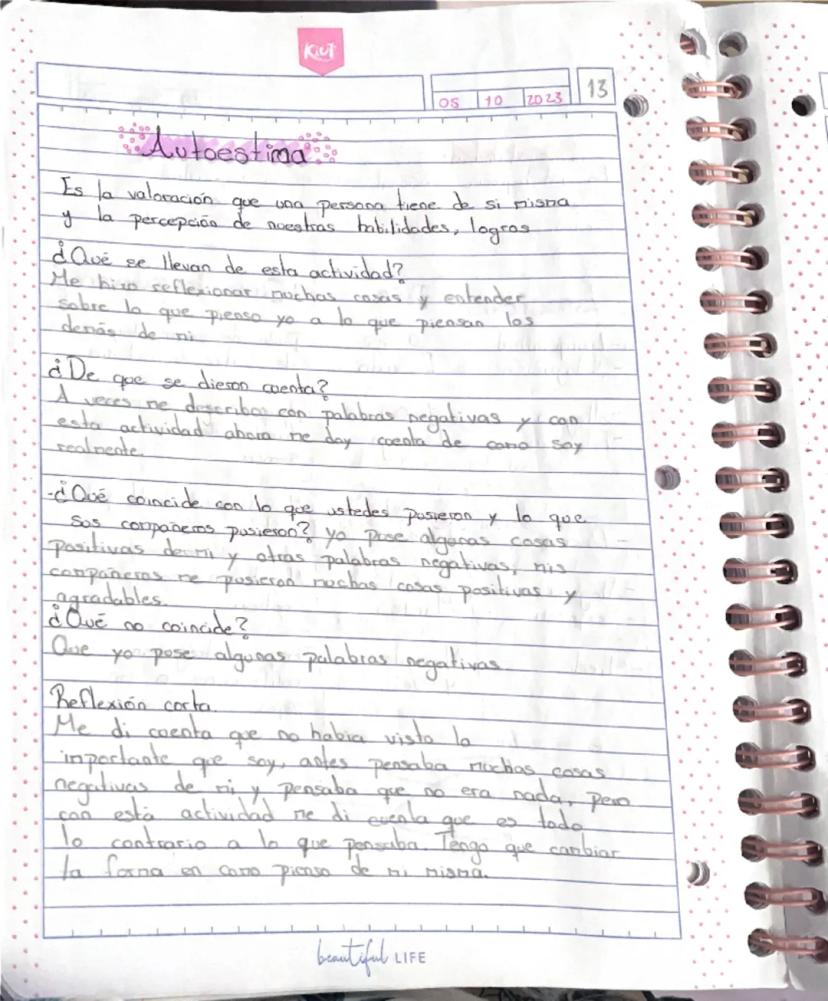 KIUT
05 10 2023 13
Autoestima
Es la valoración que una persona tiene de si misma
y la percepción de nuestras habilidades, logros
¿Qué se llevan de esta actividad?
Me hizo reflexionar muchas cosas y entender
sobre lo que pienso yo a lo que piensan los
demás de mi
¿De que se dieron cuenta?
A veces me describo con palabras negativas y con
esta actividad ahora me doy cuenta de como soy
realmente.
-¿Qué coincide con lo que ustedes pusieron y lo que
sus compañeros pusieron? yo puse algunas cosas
positivas de mi y otras palabras negativas, mis
compañeros me pusieron muchas cosas positivas y
agradables.
¿Qué no coincide?
Que yo puse algunas palabras negativas.
Reflexión corta.
Me di cuenta que no habia visto lo
importante que soy, antes pensaba muchas cosas
negativas de mi y pensaba que no era nada, pero
con está actividad me di cuenta que es todo
lo contrario a lo que pensaba. Tengo que cambiar
la forma en como pienso de mi misma.
beautiful LIFE